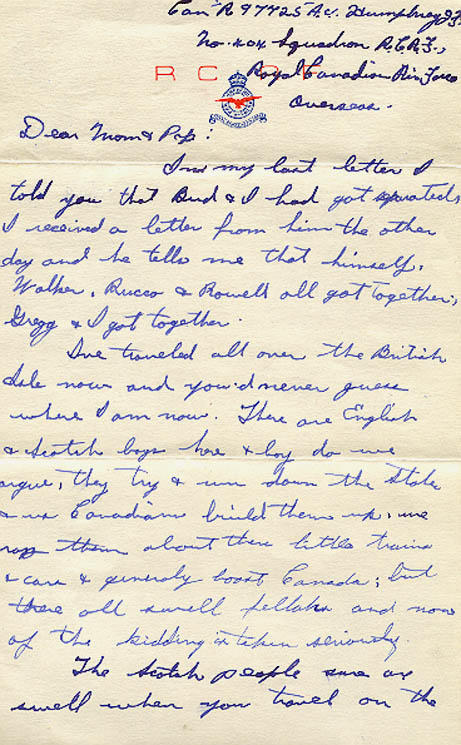 Can R 97725 A.C. Humphrey J.
No. 404 Squadron R.C.A.F.,
Royal Canadian Air Force
Overseas.
R C A F
Dear Mom & Pop:
In my last letter I
told you that Bud & I had got separated,
I received a letter from him the other
day and he tells me that himself,
Walker, Rucco & Rowell all got together;
Gregg & I got together.
I've traveled all over the British
Isle now and you'd never guess
where I am now. There are English
& Scotch boys here & boy do we
argue, they try & run down the State
& us Canadians build them up, we
rap them about there little trains
& cars & generaly boost Canada; but
there all swell fellahs and none
of the kidding is taken seriously.
The Scotch people sure are
swell when you travel on the